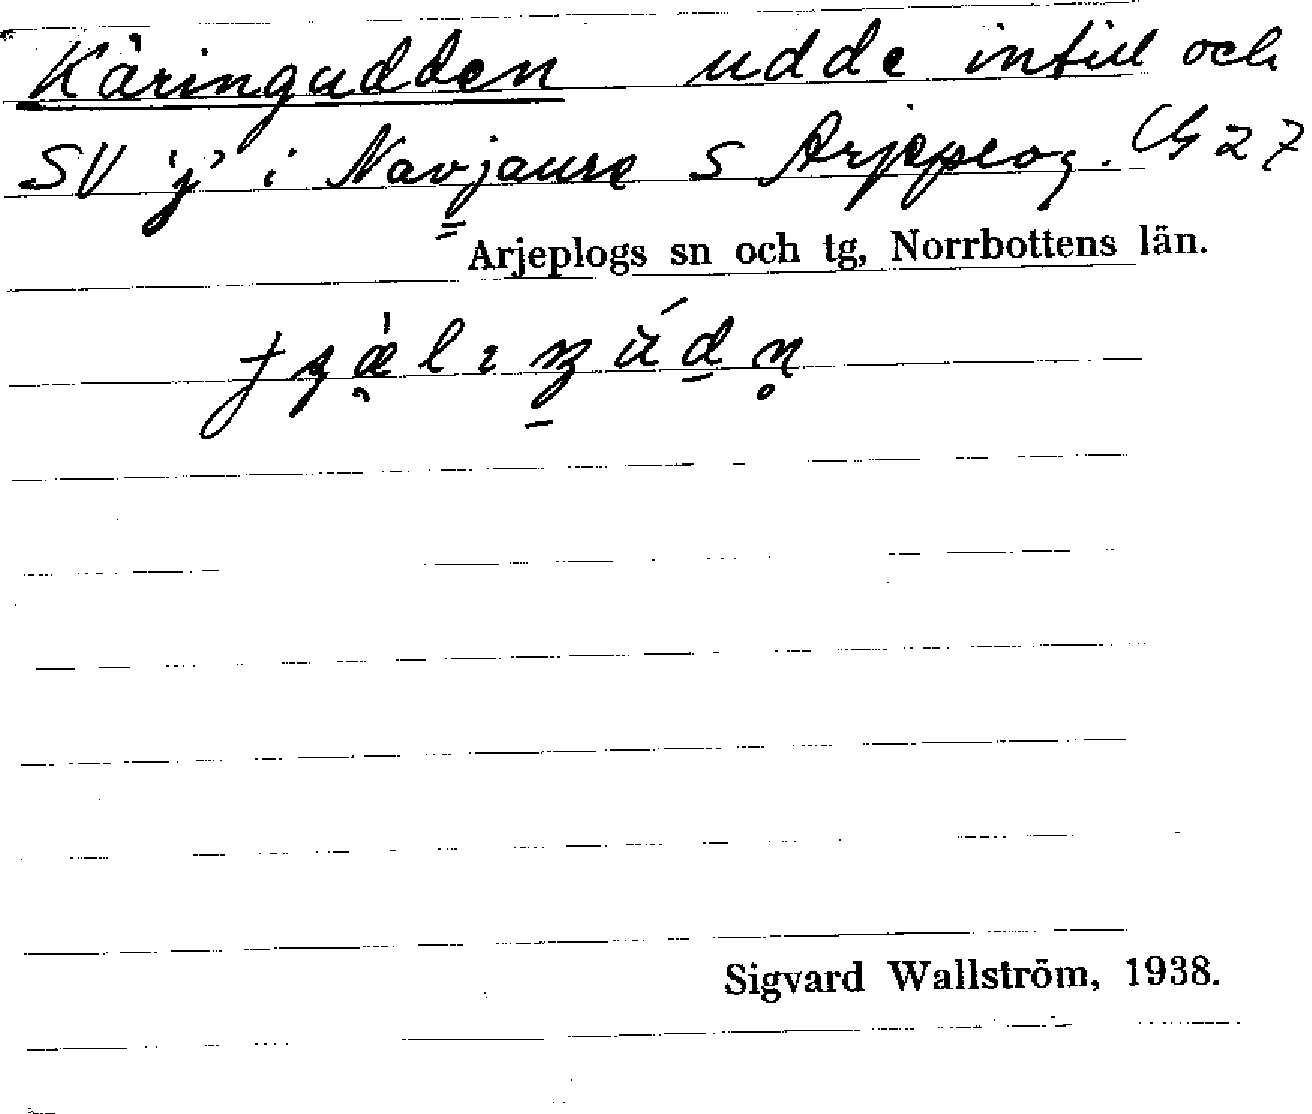 Käringudden udde intill och
SV 'j' i Navjaure S Arjeplog. Ch 27
Arjeplogs sn och tg, Norrbottens län.
Sigvard Wallström, 1938.